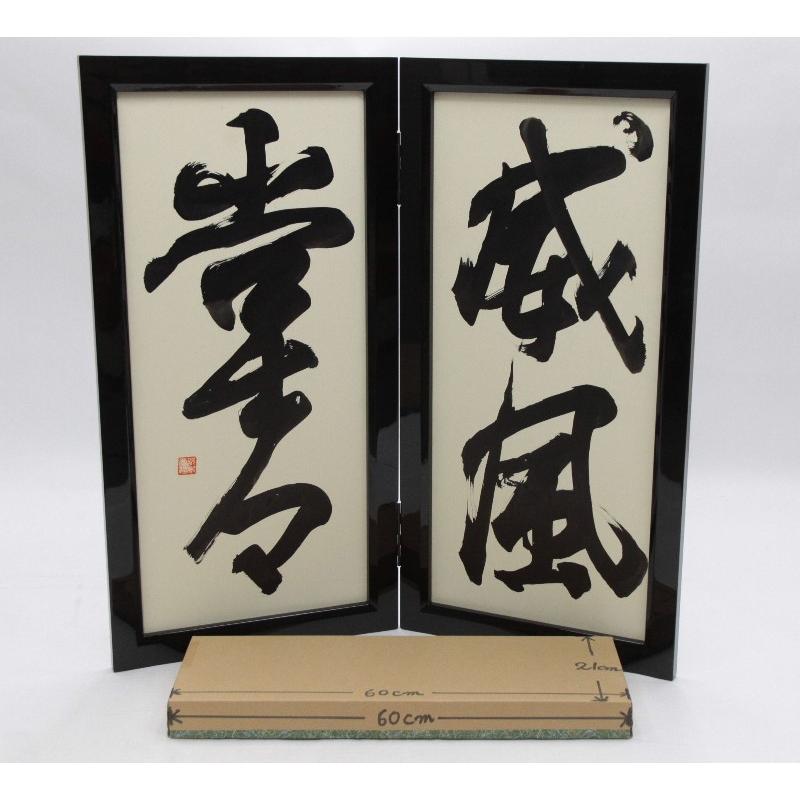 威風
堂々
21cm
60cm
60cm